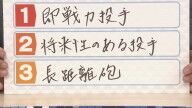 1 即戦力投手
2 将来性のある投手
3 長距離砲